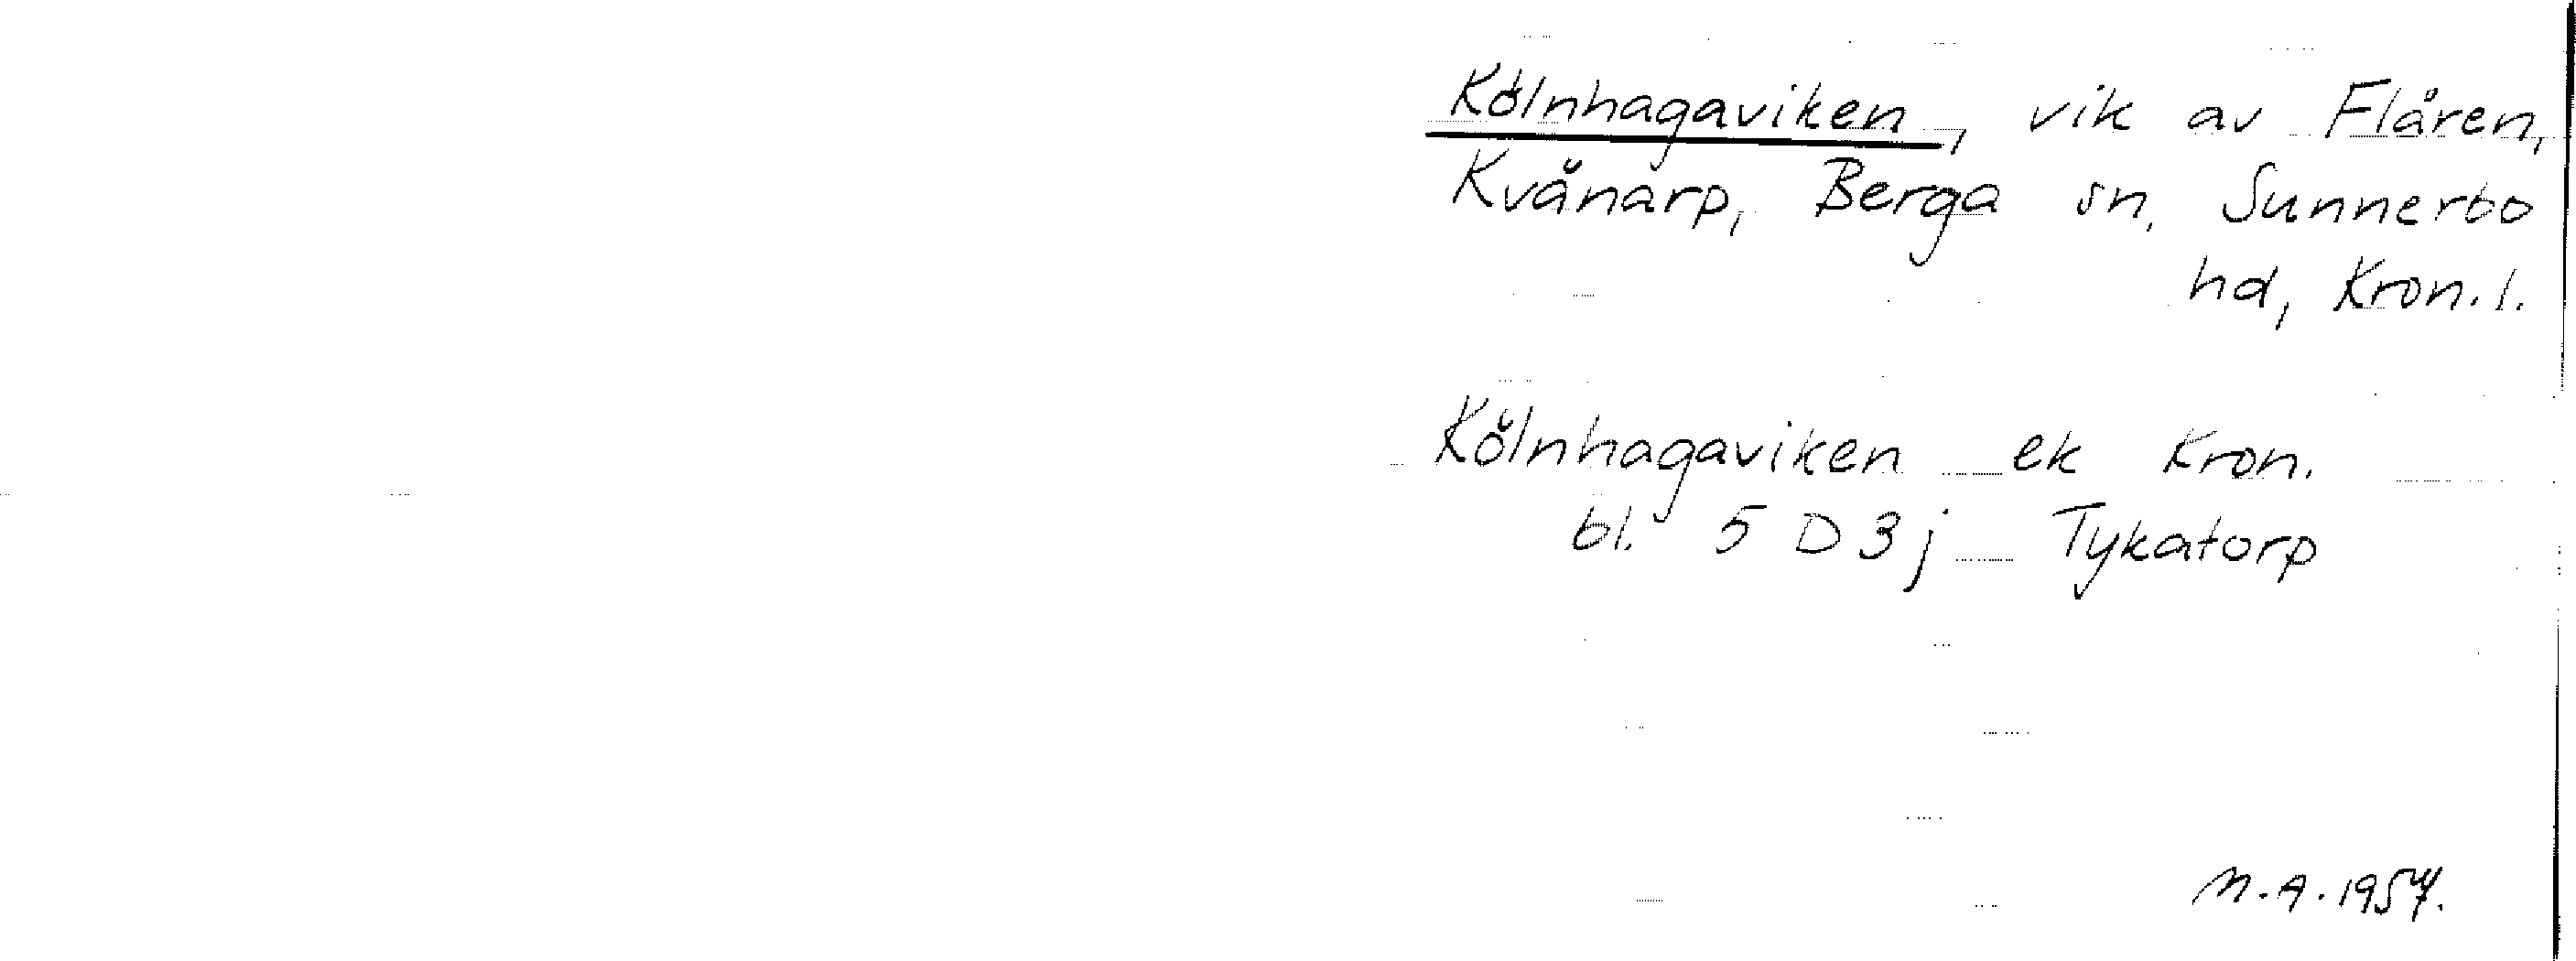 Kölnhagaviken, vik av Flåren,
Kvänarp, Berga sn, Sunnerbo
hd, Kron. l.
Kölnhagaviken ek Kron.
bl. 5 D 3 j Tykatorp
M.A. 1957.